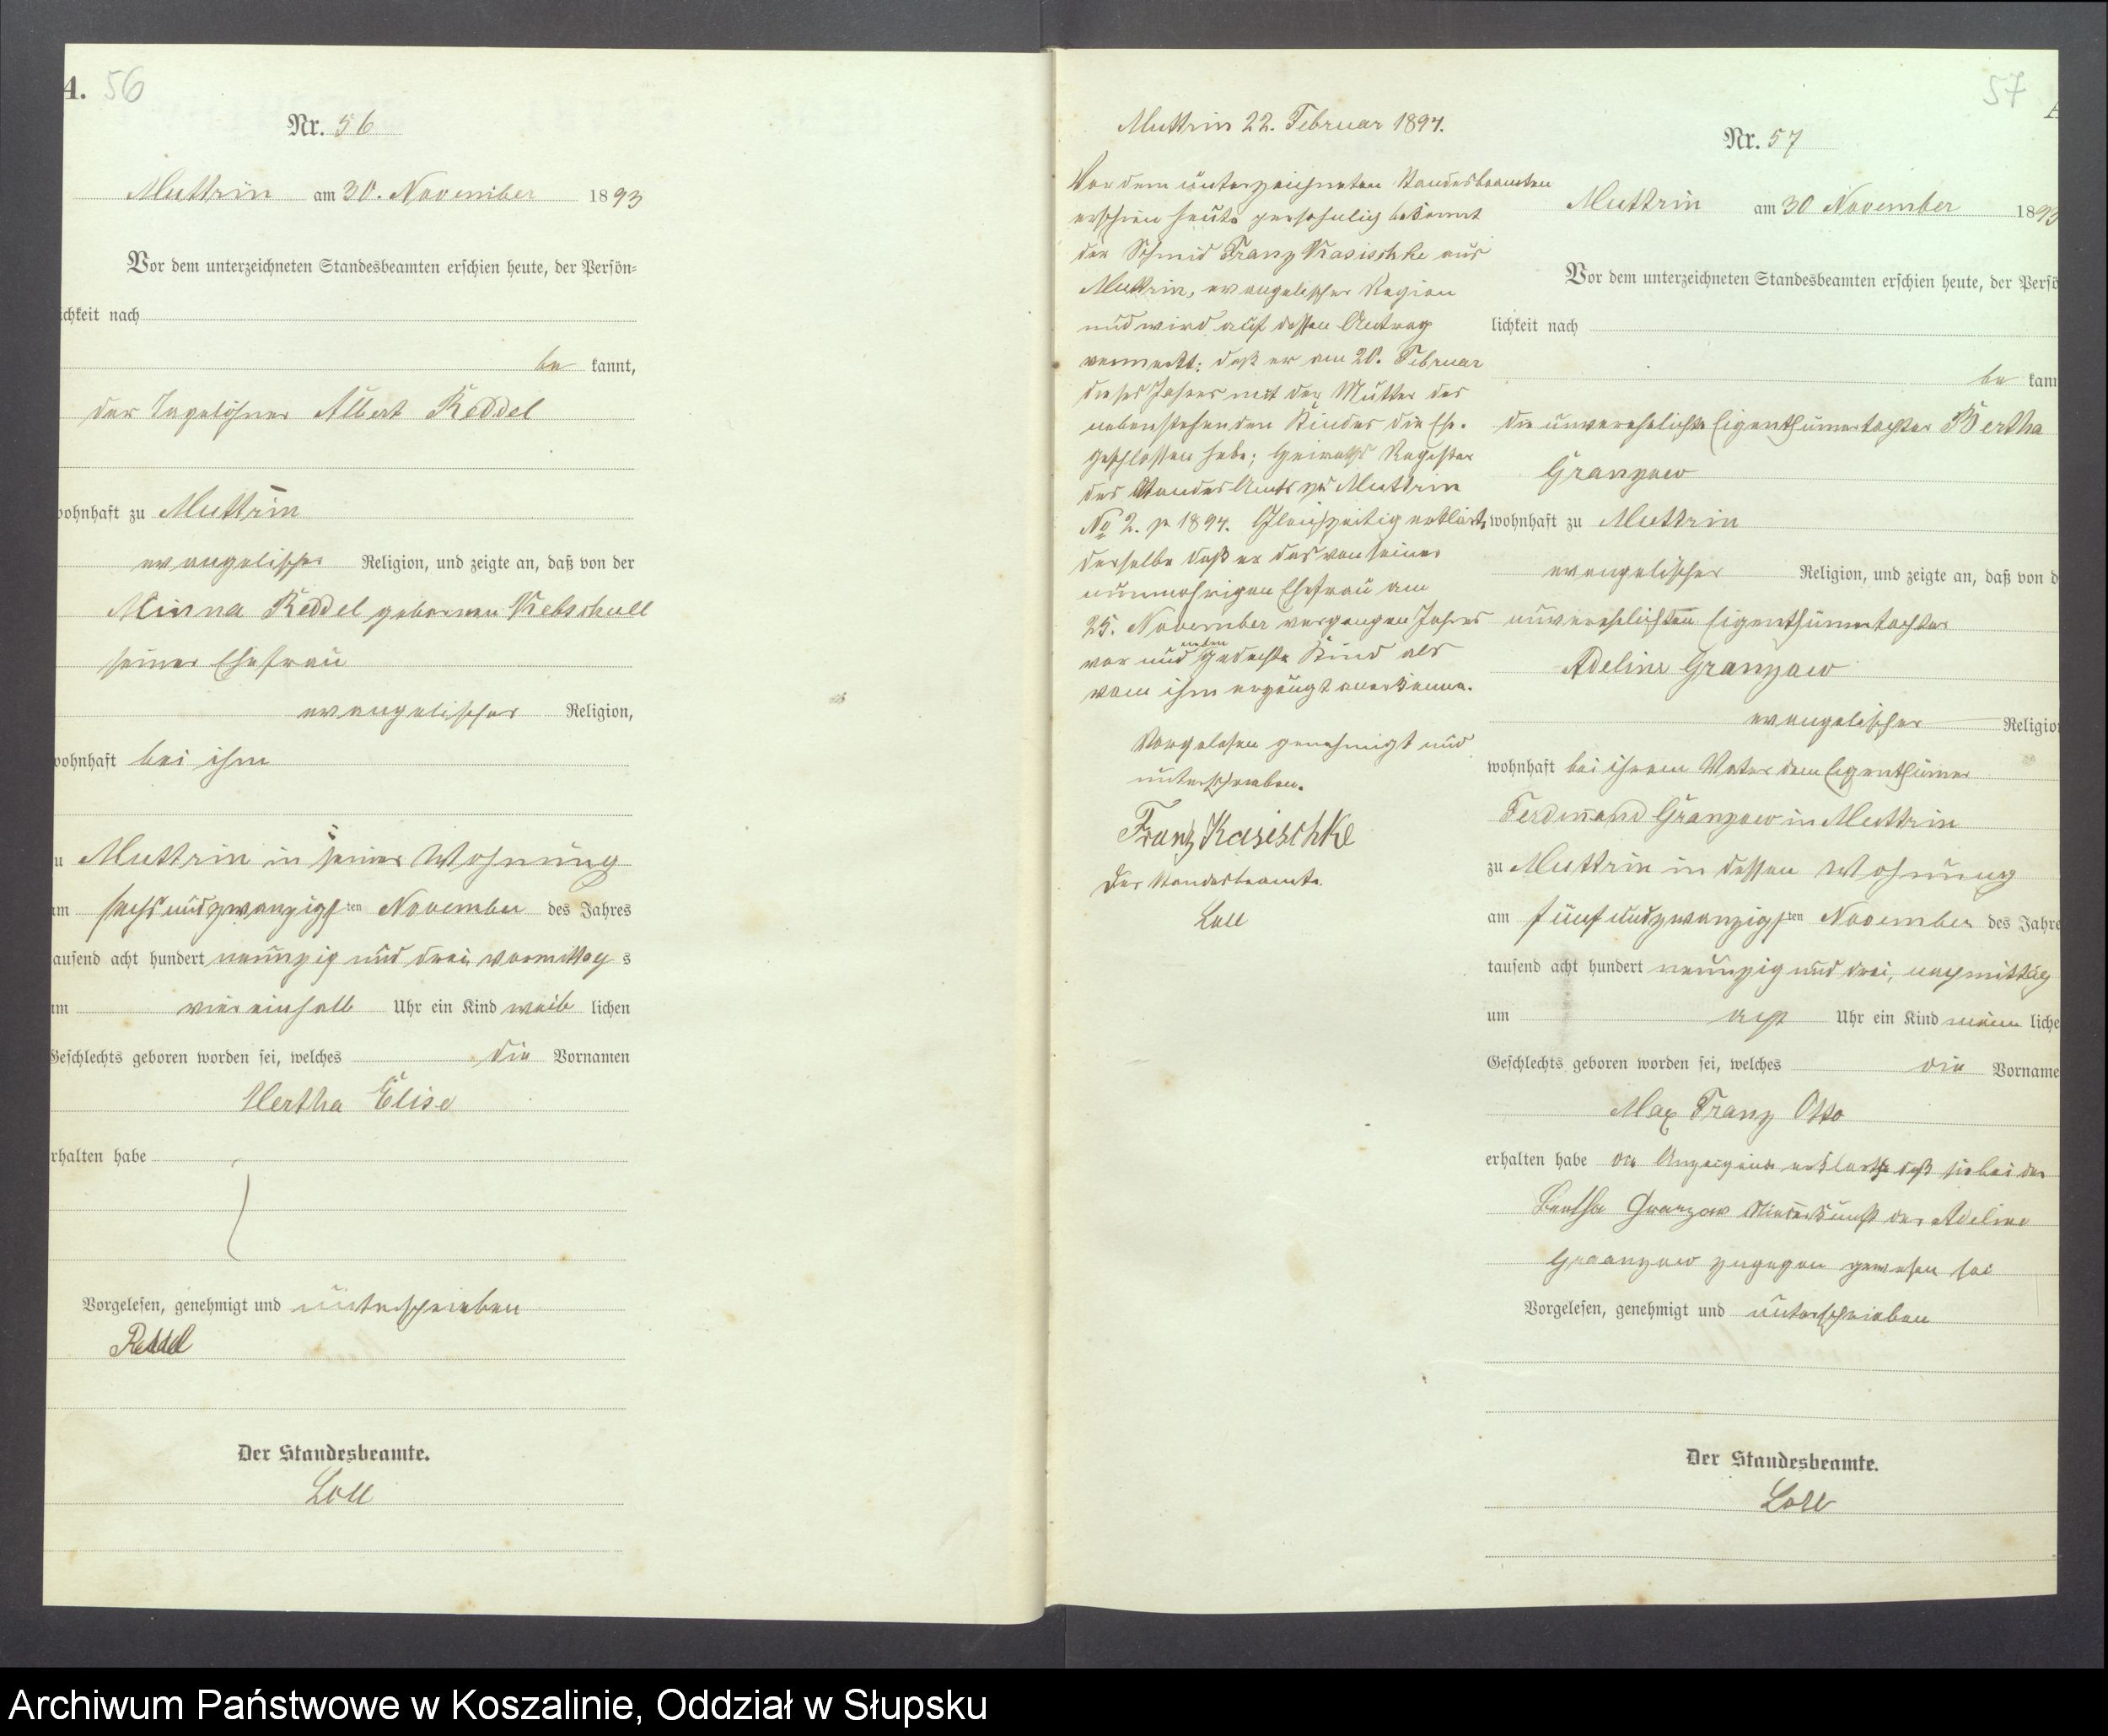 A. 56
Nr. 56
Muttrin am 30. November 1893
Vor dem unterzeichneten Standesbeamten erschien heute, der Persön-
lichkeit nach
be kannt,
der Tagelöhner Albert Reddel
wohnhaft zu Muttrin
evangelischer Religion, und zeigte an, daß von der
Minna Reddel geborenen Kebschull
seiner Ehefrau
evangelischer Religion,
wohnhaft bei ihm
zu Muttrin in seiner Wohnung
am sechsundzwanzigsten November des Jahres
tausend acht hundert neunzig und drei vormittags
um vier einhalb Uhr ein Kind weib lichen
Geschlechts geboren worden sei, welches die Vornamen
Hertha Elise
erhalten habe
Vorgelesen, genehmigt und unterschrieben
Reddel
Der Standesbeamte.
Loll
57
Muttrin 22. Februar 1894.
Vor dem unterzeichneten Standesbeamten
erschien heute persöhnlich bekannt
der Schmid Franz Kasischke aus
Muttrin, evangelischer Region
und wird auf dessen Antrag
vermerkt: daß er am 20. Februar
dieses Jahres mit der Mutter des
nebenstehenden Kindes die Ehe
geschlossen habe; Heiraths Register
des Standes Amts zu Muttrin
No 2. p 1894. Gleichzeitig erklärt,
derselbe daß er das von seiner
nunmehrigen Ehefrau am
25. November vergangen Jahres
gedachte Kind als
vom ihm erzeugt anerkenne.
Vorgelesen genehmigt und
unterschrieben.
Franz Kasischke
Der Standesbeamte.
Loll
Nr. 57
Muttrin am 30 November 1893
Vor dem unterzeichneten Standesbeamten erschien heute, der Persö
lichkeit nach
be kann
die unverehelichte Eigenthümertochter Bertha
Granzow
wohnhaft zu Muttrin
evangelischer Religion, und zeigte an, daß von d
unverehelichten Eigenthümertochter
Adeline Granzow
evangelischer Religio
wohnhaft bei ihrem Vater dem Eigenthümer
Ferdinand Granzow in Muttrin
zu Muttrin in dessen Wohnung
am fünfundzwanzigsten November des Jahre
tausend acht hundert neunzig und drei, nachmittag
um acht Uhr ein Kind männ liche
Geschlechts geboren worden sei, welches die Vorname
Max Franz Otto
erhalten habe die Anzeigende erklarte daß sie bei der
Bertha Granzow Niederkunft der Adeline
Graanzow zugegen gewesen sei
Vorgelesen, genehmigt und unterschrieben
Der Standesbeamte.
Loll
Archiwum Państwowe w Koszalinie, Oddział w Słupsku